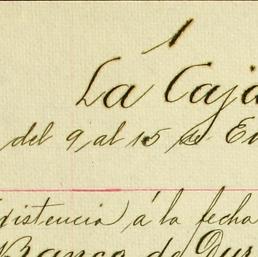 1
La Caja
del 9 al 15 de En
Existencia á la fecha
Banco de Dur